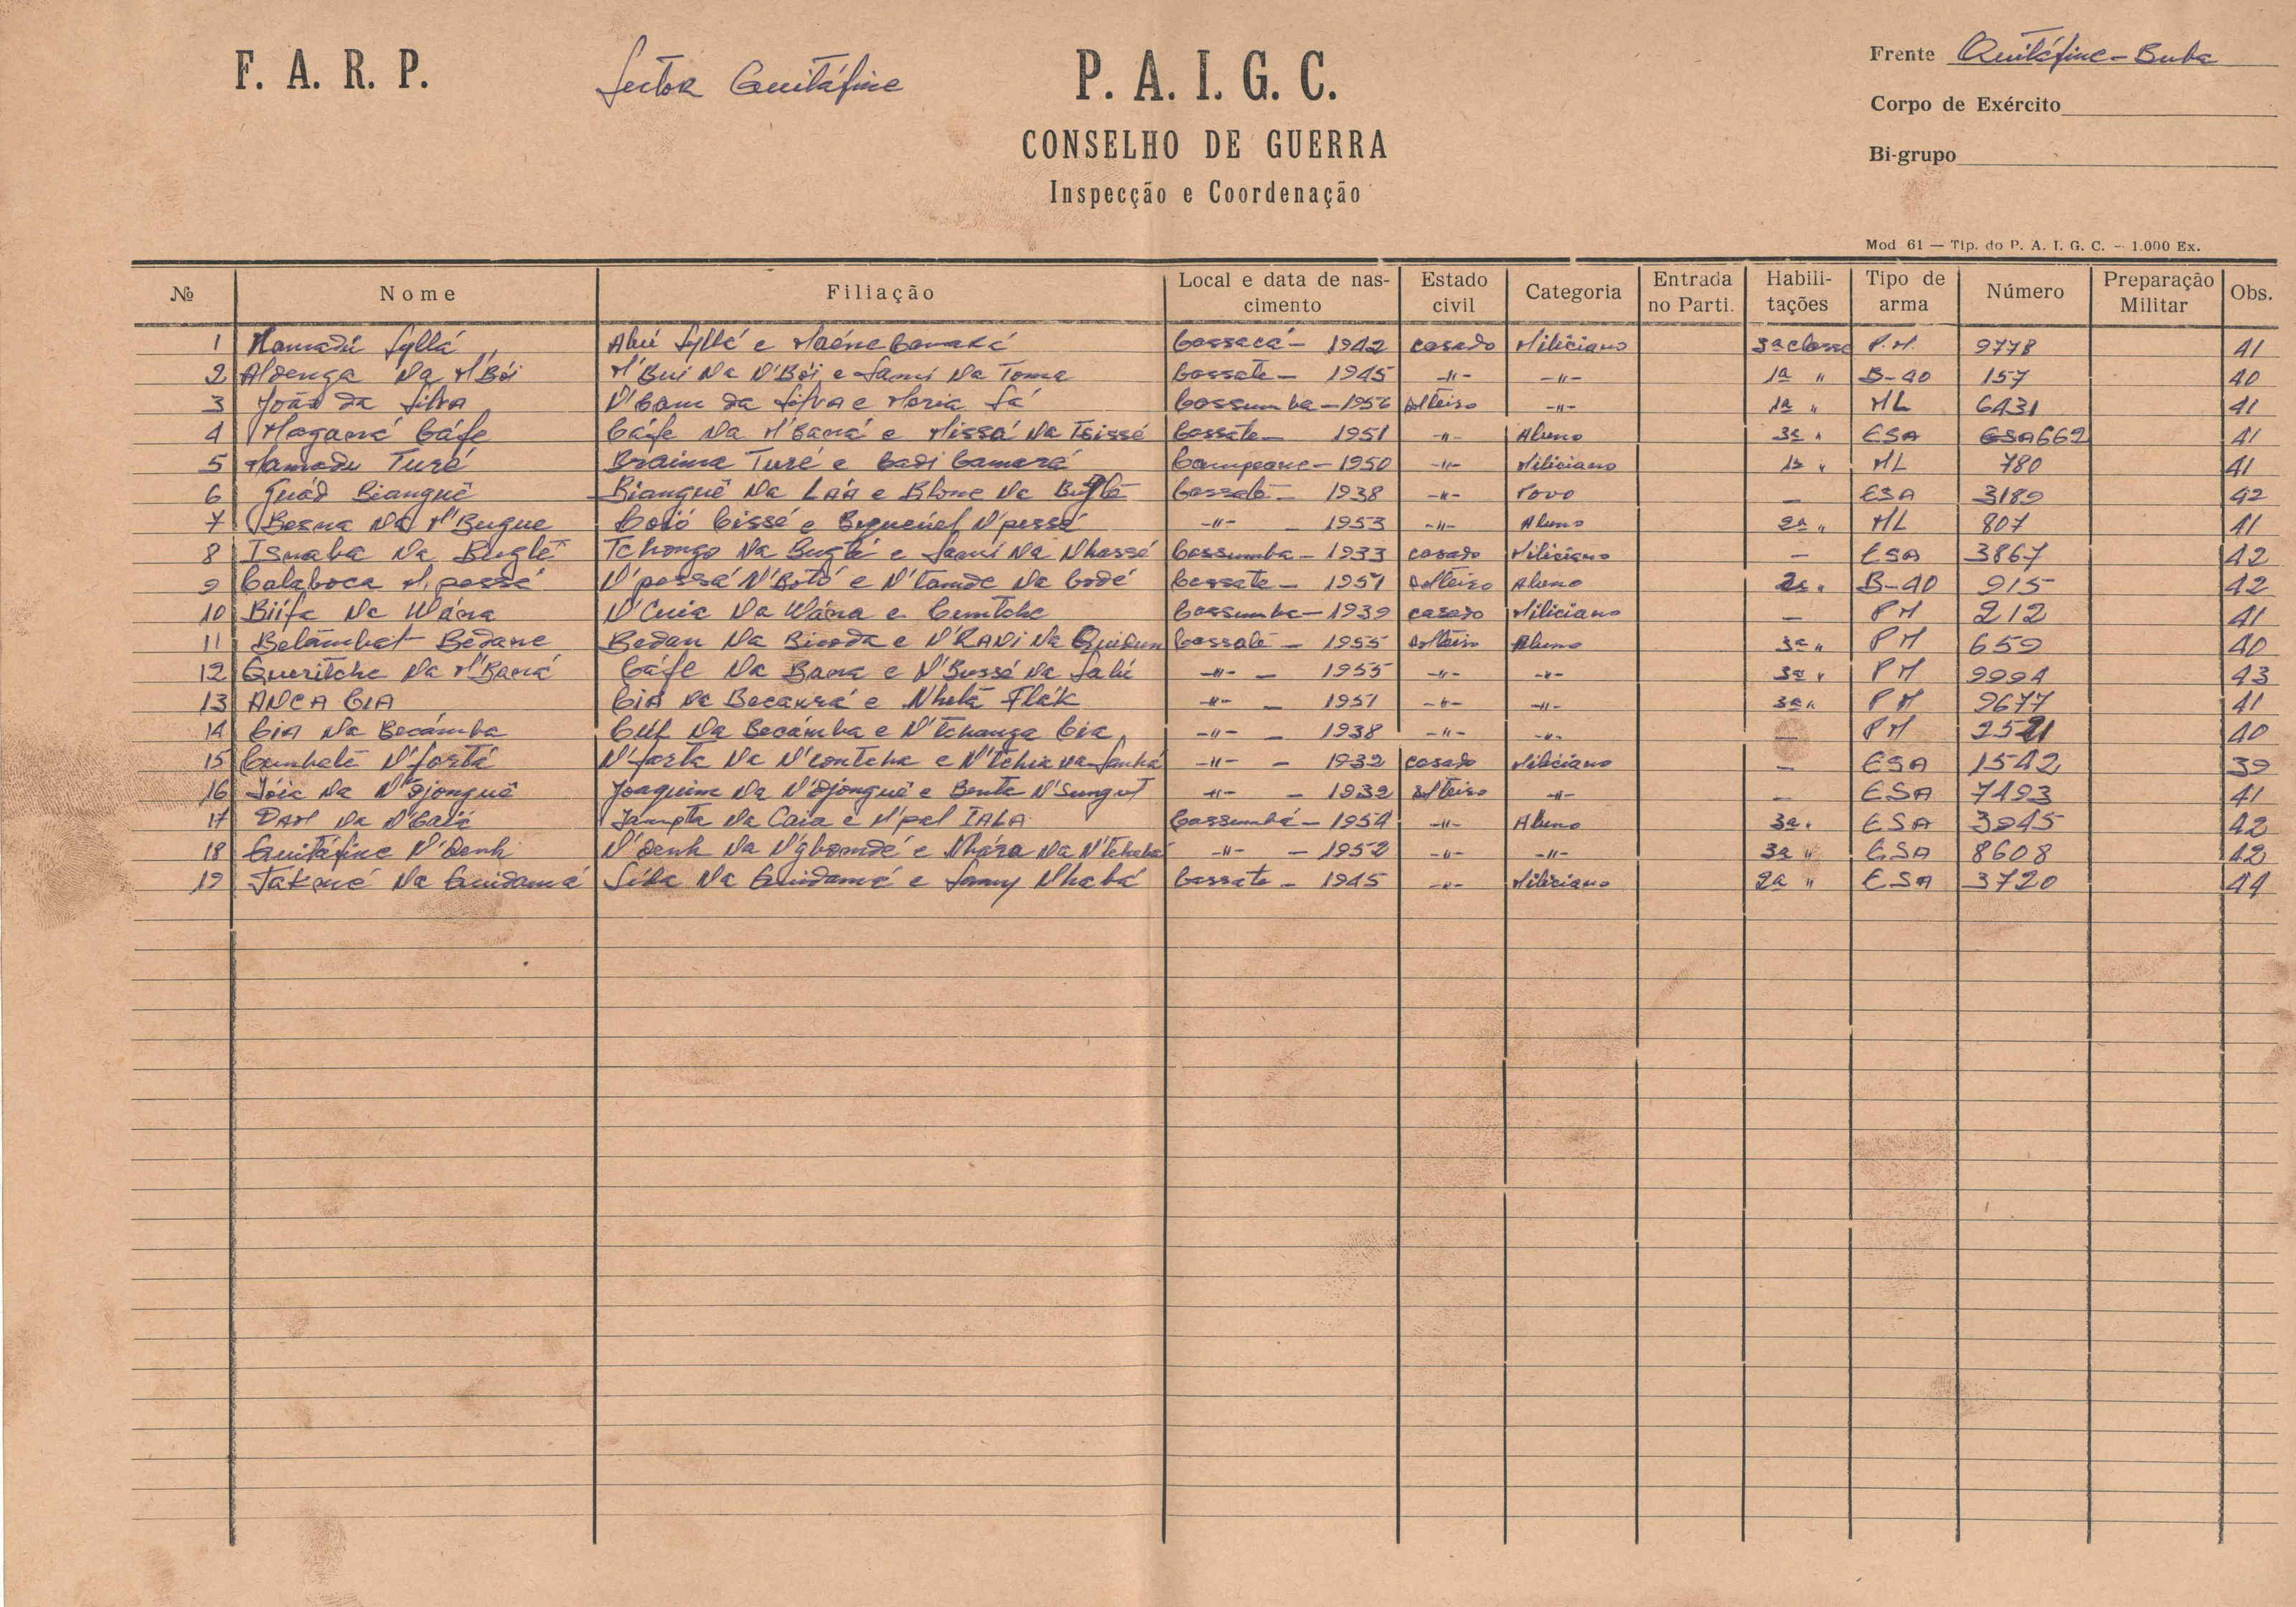 F. A. R. P.
Sector Quitáfine
P. A. I. G. C.
CONSELHO DE GUERRA
Inspecção e Coordenação
Frente Quitáfine-Buba
Corpo de Exército
Bi-grupo
Mod 61 — Tip. do P. A. I. G. C. - 1.000 Ex.
№ Nome Filiação Local e data de nascimento Estado civil Categoria Entrada no Parti. Habilitações Tipo de arma Número Preparação Militar Obs.
1 Mamadú Syllá Abú Syllá e Camará 1942 casado Miliciano 3ª classe P.M. 9778 41
2 Na M'Bói M'Bui Na N'Bói e Sami Na Toma Cassate - 1945 -"- -"- 1ª " B-40 157 40
3 João da Silva N'Cam da Silva e Maria Sá Cassumba - 1956 solteiro -"- 1ª " ML 6431 41
4 Maganá Cáfe Cáfe Na M'Baná e Missá Na Tsissé Cassate - 1951 -"- Aluno 3ª " ESA ESA662 41
5 Mamadu Turé Braima Turé e Cadi Camará Campeane - 1950 -"- Miliciano 1ª " ML 780 41
6 Bianguê Bianguê Na Láa e Blone Na Buglê - 1938 -"- Povo — ESA 3189 42
7 Besna Na M'Bugue Cissé e N'pessé -"- - 1953 -"- Aluno 2ª " ML 807 41
8 Isnaba Na Buglê Tchongo Na Buglê e Sami Na Nhassé Cassumba - 1933 casado Miliciano — ESA 3867 42
9 Calaboca N'passá N'passá N'Botó e N'tamde Na Codé Cassate - 1951 solteiro Aluno 2ª " B-40 915 42
10 Biifa Na Wána N'Cuia Na Wána e Cumtche Cassumba - 1939 casado Miliciano — PM 212 41
11 Belámbat Bedane Bedan Na Bisoda e N'RANI Na - 1955 solteiro Aluno 3ª " PM 659 40
12 Queritche Na M'Baná Cáfe Na Bana e N'Bussé Na Salú -"- - 1955 -"- -"- 3ª " PM 9994 43
13 ANCA CIA CIA Na Becanrá e Nhetá Flák -"- - 1951 -"- -"- 3ª " PM 9677 41
14 CIA Na Becámba Na Becámba e N'tchanga Cia -"- - 1938 -"- -"- PM 40
15 Cumbatê N'fortá N'forta Na N'contcha e N'tchia na Sanhá -"- - 1932 casado Miliciano — ESA 1542 39
16 Jóia Na N'djonguê Joaquim Na N'djonguê e Benta N'Sungut -"- - 1932 solteiro -"- — ESA 7493 41
17 DAM Na N'Calá Jampta Na Caia e N'pal IALA Cassumbá - 1954 -"- Aluno 3ª " ESA 3045 42
18 Quitáfine N'Denh N'denh Na N'ghomdé e Nhára Na N'tchebá -"- - 1952 -"- -"- 3ª " ESA 8608 42
19 Takmé Na Guidamá Sika Na Guidamá e Samy Nhabá Cassate - 1945 -"- Miliciano 2ª " ESA 3720 44